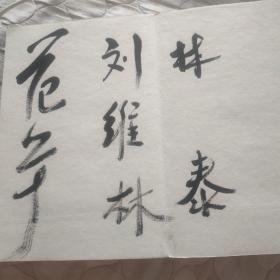 林泰
刘维林
范年